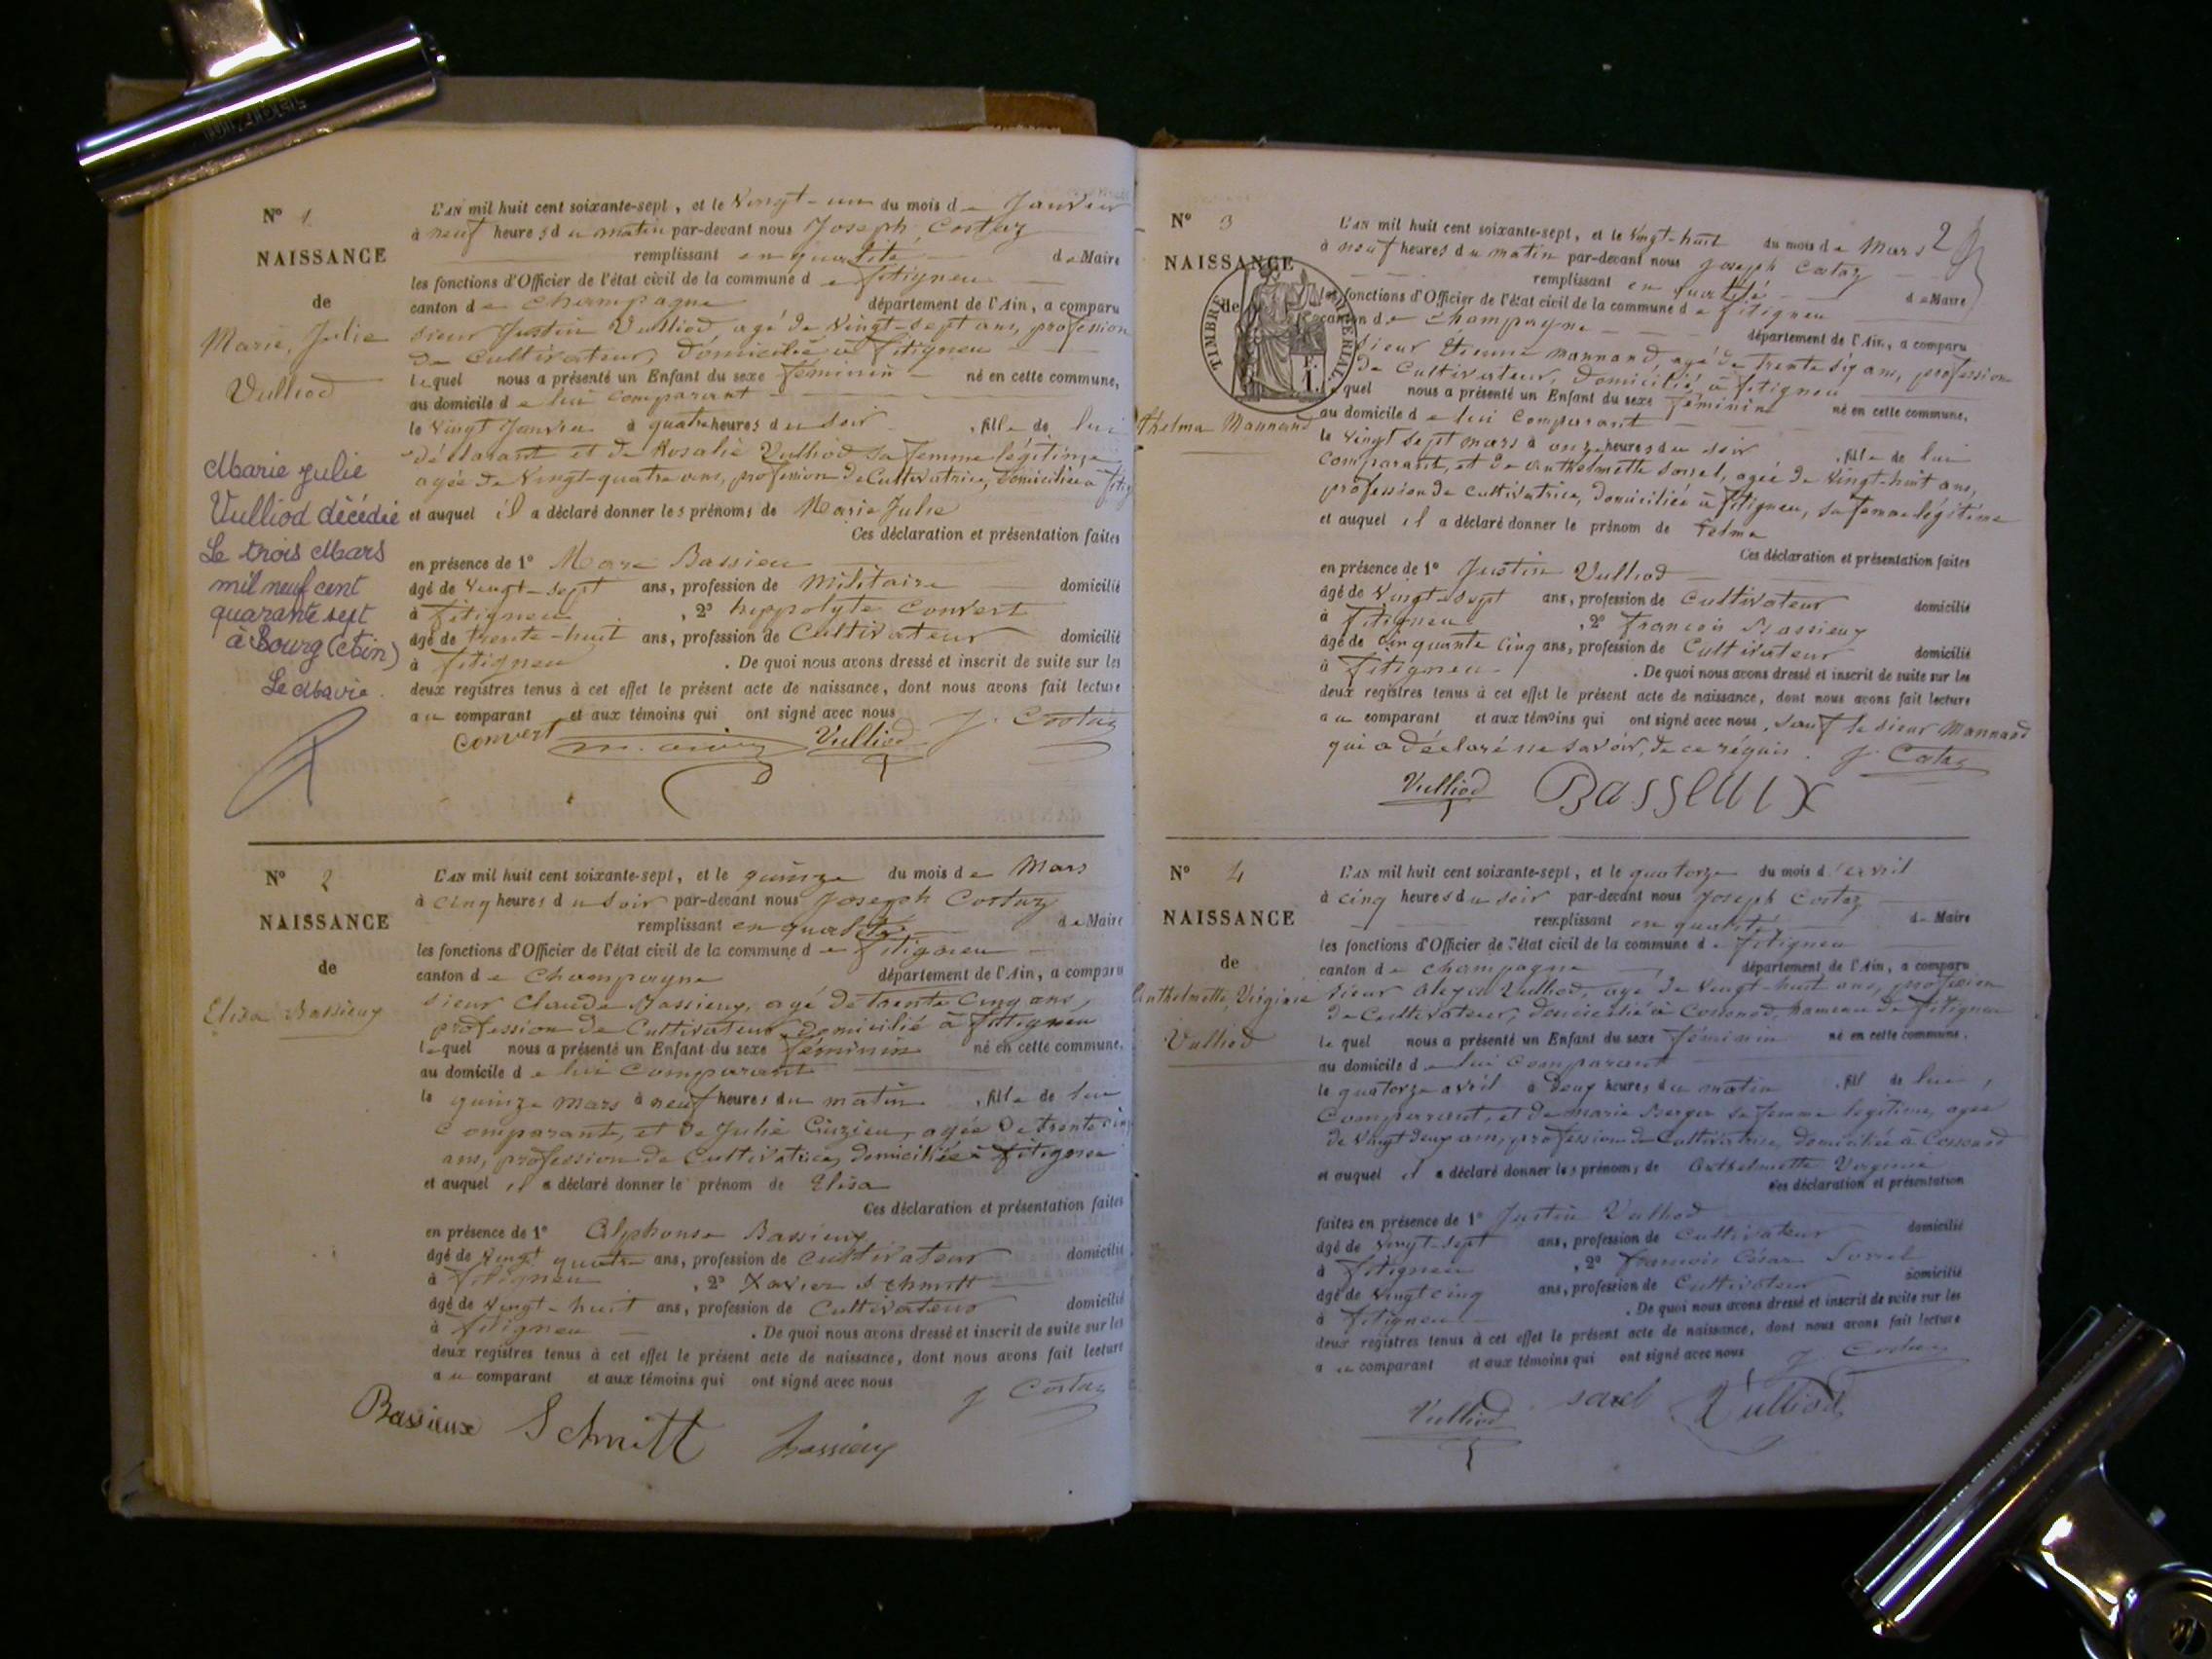 N° 1
NAISSANCE
de
Marie, Julie
Vulliod
Marie Julie
Vulliod décédée
Le trois Mars
mil neuf cent
quarante sept
à Bourg (Ain)
Le Maire.
L'AN mil huit cent soixante-sept, et le Vingt-un du mois de Janvier
à neuf heures du matin par-devant nous Joseph Costaz
remplissant en qualité de Maire
les fonctions d'Officier de l'état civil de la commune de fitigneu
canton de Champagne département de l'Ain, a comparu
sieur Justin Vulliod agé de Vingt-sept ans, profession
de Cultivateur, Domicilié à fitigneu
lequel nous a présenté un Enfant du sexe féminin né en cette commune,
au domicile de lui comparant
le Vingt Janvier à quatre heures du soir, fille de lui
déclarant et de Rosalie Vulliod sa femme légitime
agée de Vingt-quatre ans, profession de Cultivatrice, Domiciliée à fitig
et auquel il a déclaré donner les prénoms de Marie Julie
Ces déclaration et présentation faites
en présence de 1° Marc Bassieu
âgé de Vingt-sept ans, profession de Militaire domicilié
à fitigneu, 2° hyppolyte Convert
âgé de trente-huit ans, profession de Cultivateur domicilié
à fitigneu. De quoi nous avons dressé et inscrit de suite sur les
deux registres tenus à cet effet le présent acte de naissance, dont nous avons fait lecture
au comparant et aux témoins qui ont signé avec nous J. Costaz
Convert Vulliod
N° 2
NAISSANCE
de
Elisa Bassieux
L'AN mil huit cent soixante-sept, et le quinze du mois de Mars
à cinq heures du soir par-devant nous Joseph Costaz
remplissant en qualité de Maire
les fonctions d'Officier de l'état civil de la commune de fitigneu
canton de Champagne département de l'Ain, a comparu
sieur Claude Bassieux, agé de trente Cinq ans,
profession de Cultivateur, domicilié à fitigneu
lequel nous a présenté un Enfant du sexe féminin né en cette commune,
au domicile de lui Comparant
le quinze mars à neuf heures du matin, fille de lui
comparante, et de Julie agée De trente cin
ans, profession de Cultivatrice, domiciliée à fitigneu
et auquel il a déclaré donner le prénom de Elisa
Ces déclaration et présentation faites
en présence de 1° Alphonse Bassieux
âgé de Vingt quatre ans, profession de cultivateur domicilié
à fitigneu, 2° Xavier Schmitt
âgé de Vingt-huit ans, profession de Cultivateur domicilié
à fitigneu. De quoi nous avons dressé et inscrit de suite sur les
deux registres tenus à cet effet le présent acte de naissance, dont nous avons fait lecture
au comparant et aux témoins qui ont signé avec nous
J Costaz
Bassieux Schmitt Bassieux
2
N° 3
NAISSANCE
de
TIMBRE IMPÉRIAL
F.
1.
thelma Mannand
L'AN mil huit cent soixante-sept, et le Vingt-huit du mois de Mars
à neuf heures du matin par-devant nous Joseph Costaz
remplissant en qualité de Maire
les fonctions d'Officier de l'état civil de la commune de fitigneu
canton de Champagne département de l'Ain, a comparu
sieur Etienne Mannand, agé de trente six ans, profession
de Cultivateur, Domicilié à fitigneu
lequel nous a présenté un Enfant du sexe féminin né en cette commune,
au domicile de lui Comparant
le Vingt sept mars à onze heures du soir, fille de lui
comparant, et de Anthelmette Sorrel, agée de Vingt-huit ans,
profession de cultivatrice, domiciliée à fitigneu, sa femme légitime
et auquel il a déclaré donner le prénom de Telma
Ces déclaration et présentation faites
en présence de 1° Justin Vulliod
âgé de Vingt-sept ans, profession de Cultivateur domicilié
à fitigneu, 2° francois Bassieux
âgé de Cinquante Cinq ans, profession de Cultivateur domicilié
à fitigneu. De quoi nous avons dressé et inscrit de suite sur les
deux registres tenus à cet effet le présent acte de naissance, dont nous avons fait lecture
au comparant et aux témoins qui ont signé avec nous, sauf le sieur Mannand
qui a déclaré ne savoir, de ce réquis. J. Costaz
Vulliod Basseuix
N° 4
NAISSANCE
de
Anthelmette, Virginie
Vulliod
L'AN mil huit cent soixante-sept, et le quatorze du mois d'avril
à cinq heures du soir par-devant nous Joseph Costaz
remplissant en qualité de Maire
les fonctions d'Officier de l'état civil de la commune de fitigneu
canton de Champagne département de l'Ain, a comparu
sieur Vulliod, agé de Vingt-huit ans, profession
de Cultivateur, domicilié à Cossonod, hameau de fitigneu
lequel nous a présenté un Enfant du sexe féminin né en cette commune,
au domicile de lui Comparant
le quatorze avril à deux heures du matin, fil de lui,
Comparant, et de Marie Berger sa femme légitime, agée
de Vingt deux ans, profession de Cultivatrice, Domiciliée à Cossonod
et auquel il a déclaré donner les prénoms de Anthelmette Virginie
Ces déclaration et présentation
faites en présence de 1° Justin Vulliod domicilié
âgé de Vingt-sept ans, profession de Cultivateur
à fitigneu, 2° francois César Sorrel
âgé de Vingt cinq ans, profession de Cultivateur domicilié
à fitigneu. De quoi nous avons dressé et inscrit de suite sur les
deux registres tenus à cet effet le présent acte de naissance, dont nous avons fait lecture
au comparant et aux témoins qui ont signé avec nous J. Costaz
Vulliod sorel Vulliod